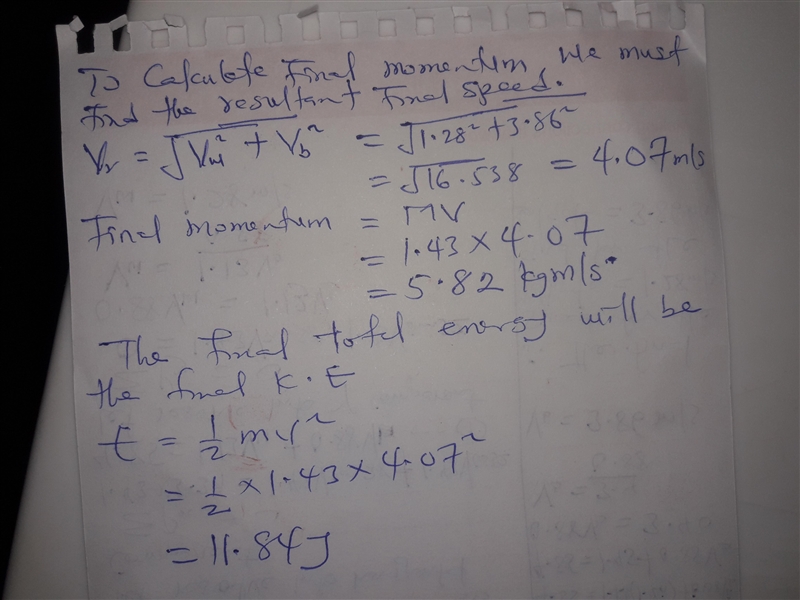 To Calculate Final momentum, we must
Find the resultant Final speed.
Vr = √Vw² + Vb² = √1.28² + 3.86²
= √16.538 = 4.07m/s
Final momentum = MV
= 1.43 × 4.07
= 5.82 kgm/s
The final total energy will be
the final K.E
E = 1/2 mv²
= 1/2 × 1.43 × 4.07²
= 11.84J